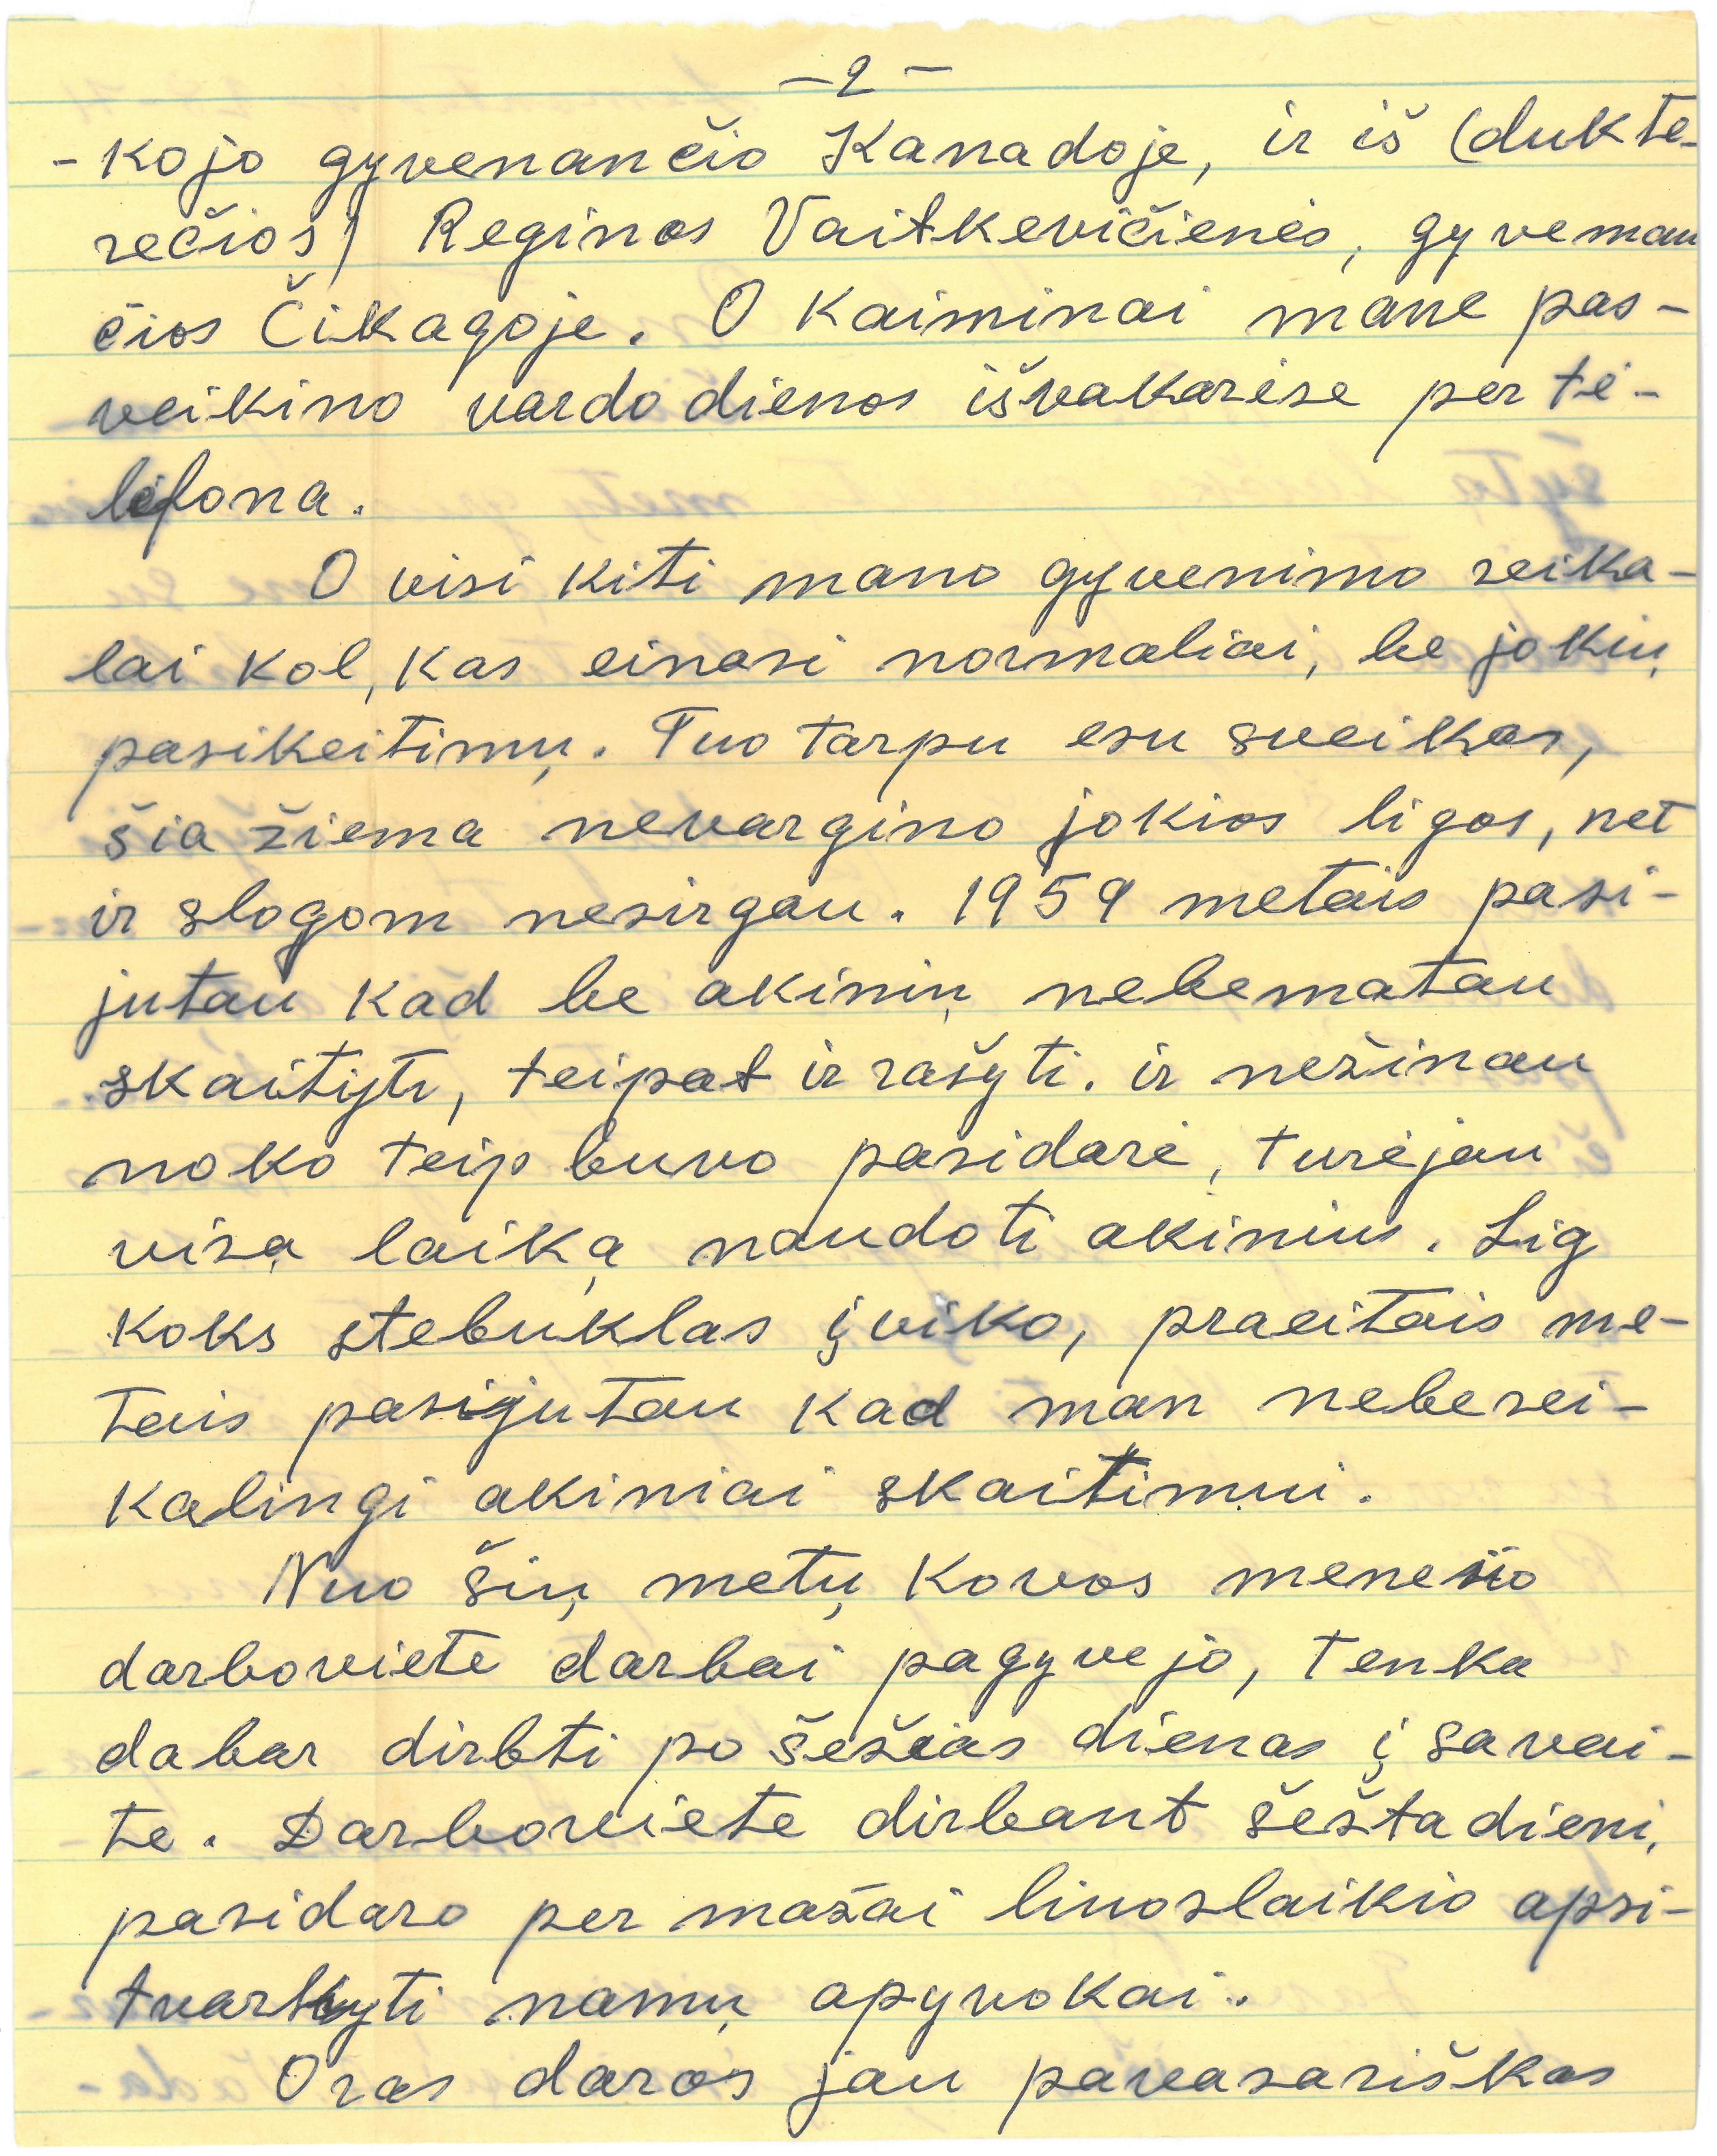 -2-
-kojo gyvenančio Kanadoje, ir iš (dukte-
rečios) Reginos Vaitkevičienės, gyvenan
čios Čikagoje. O Kaiminai mane pas-
veikino vardo dienos išvakarėse per te-
lefona.
O visi kiti mano gyvenimo reika-
lai kol, kas einasi normaliai, be jokių
pasikeitimų. Tuo tarpu esu sveikas,
šia žiema nevargino jokios ligos, net
ir slogom nesirgau. 1959 metais pasi-
jutau kad be akinių nebematau
skaityti, teipat ir rašyti. ir nežinau
noko teip buvo pasidarė, turėjau
visą laiką naudoti akinius. Lig
koks stebuklas įviko, praeitais me-
tais pasijutau kad manneberei-
kalingi akiniai skaitimui.
Nuo šių metų Kovos menesio
darboviete darbai pagyvejo, tenka
dabar dirbti po šešias dienas į savai-
te. Darboviete dirbant šeštadieni,
pasidaro per mažai liuoslaikio apsi-
tvarkyti namų apyvokai.
Oras daros jau pavasariškas